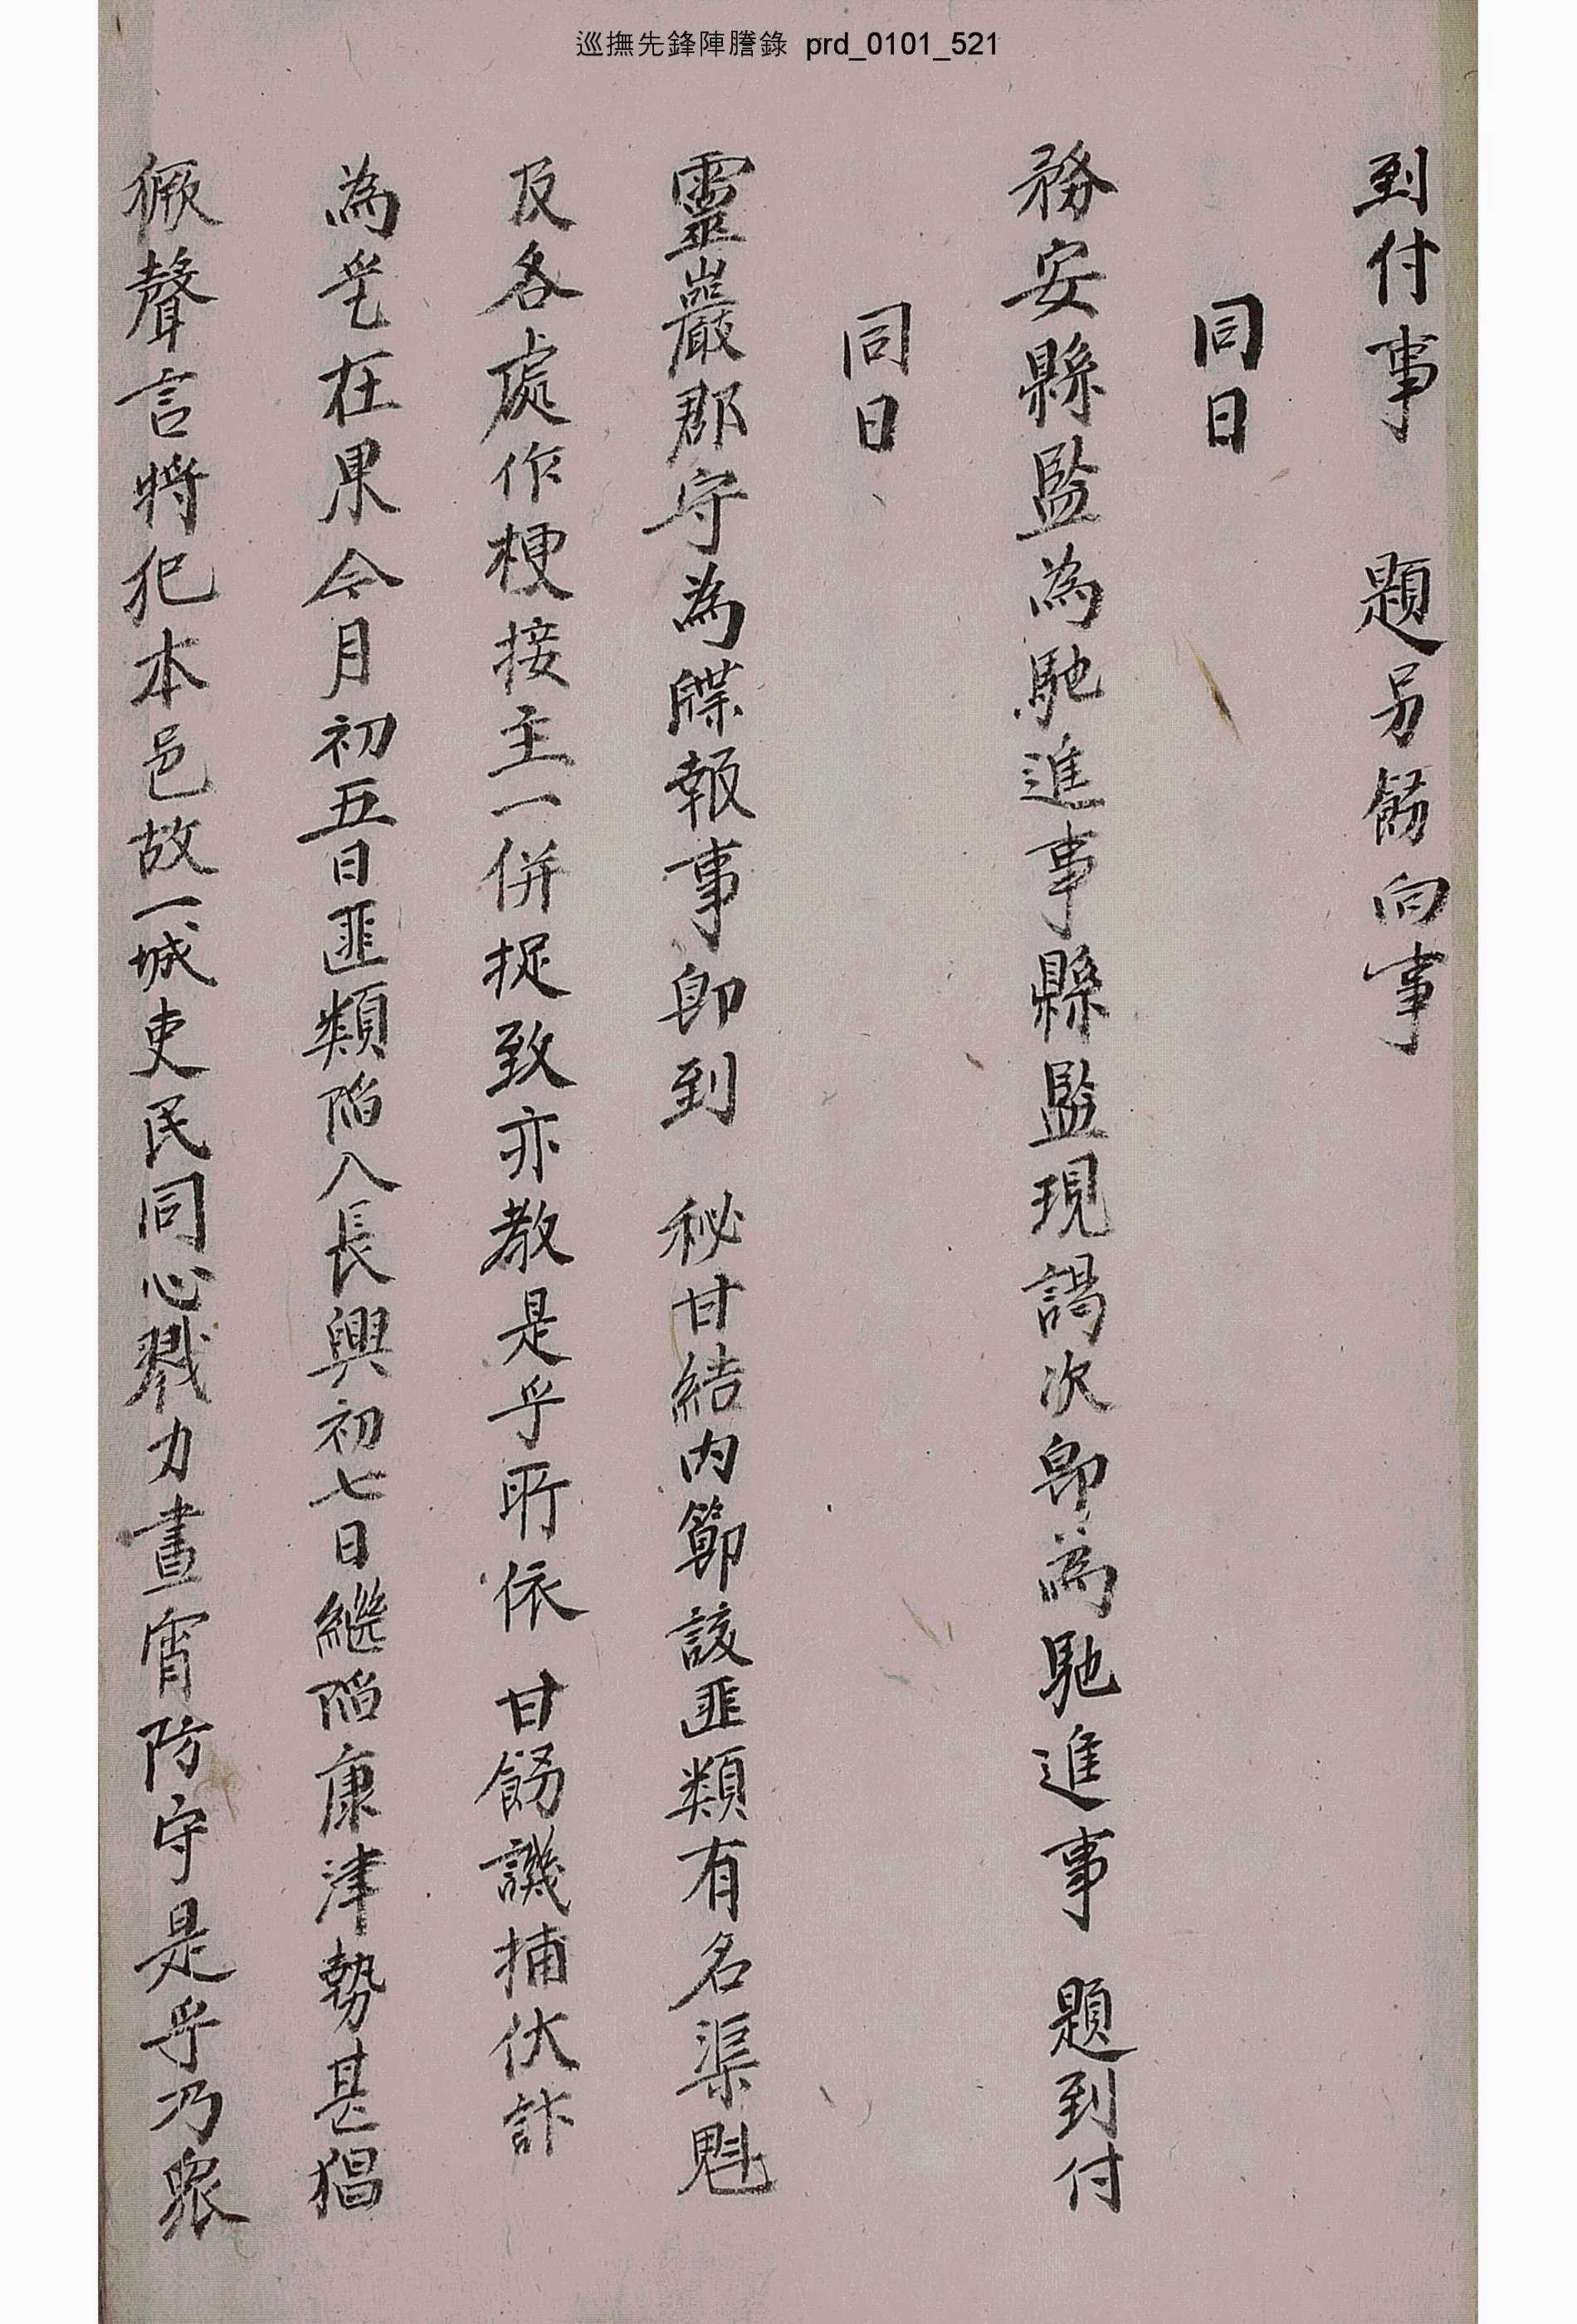 巡撫先鋒陣謄錄 prd_0101_521
到付事 題另飭向事
同日
務安縣監為馳進事縣監現謁次卽為馳進事 題到付
同日
靈巖郡守為牒報事卽到 秘甘結內節該匪類有名渠魁
及各處作梗接主一倂捉致亦敎是乎所依 甘飭譏捕伏計
為乎在果今月初五日匪類陷入長興初七日繼陷康津勢甚猖
獗聲言將犯本邑故一城吏民同心戮力晝宵防守是乎乃衆